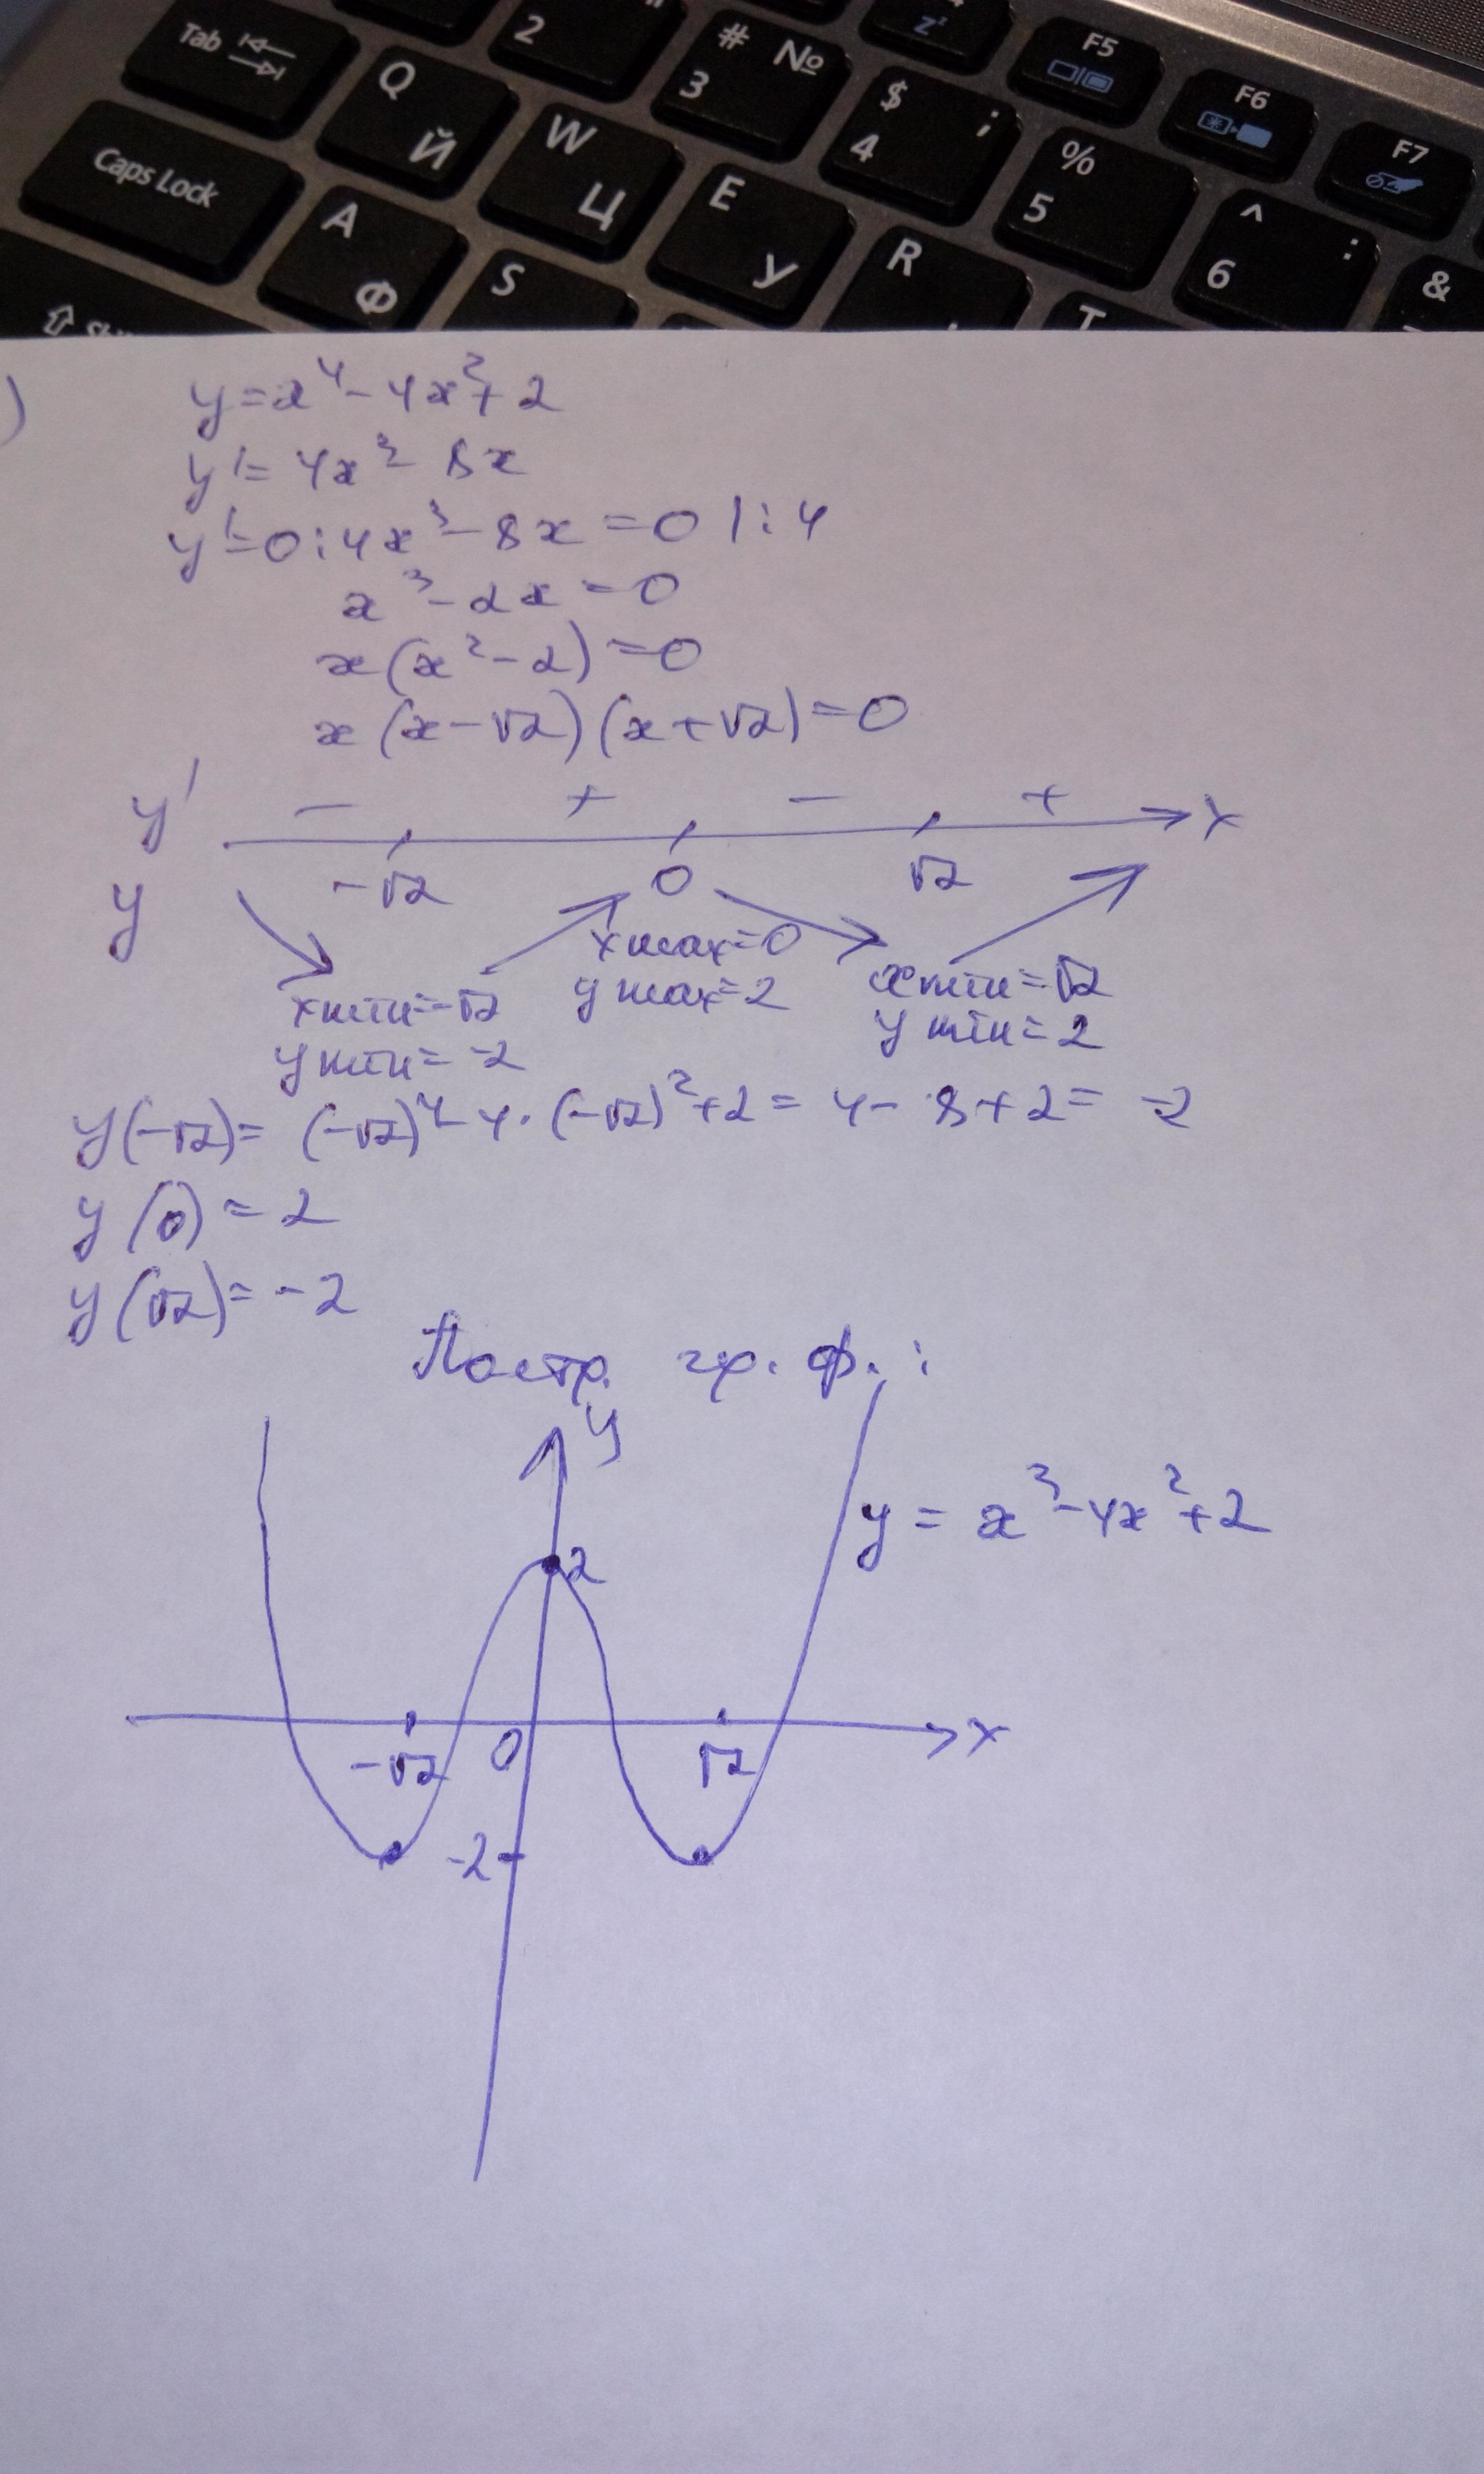 Tab 2 # № $ ; F5 F6 F7
3 4 % 5 ^ : 6 &
Caps Lock Q Й W Ц E У R T
A Ф S
)
y=x⁴-4x²+2
y'=4x³-8x
y'=0:4x³-8x=0 |:4
x³-2x=0
x(x²-2)=0
x(x-√2)(x+√2)=0
y' - + - + x
-√2 0 √2
y
xmax=0
xmin=-√2 ymax=2 xmin=√2
ymin=-2 ymin=2
y(-√2)=(-√2)⁴-4·(-√2)²+2=4-8+2=-2
y(0)=2
y(√2)=-2
Постр. гр. ф.:
y
y=x³-4x²+2
2
-√2 0 √2 x
-2